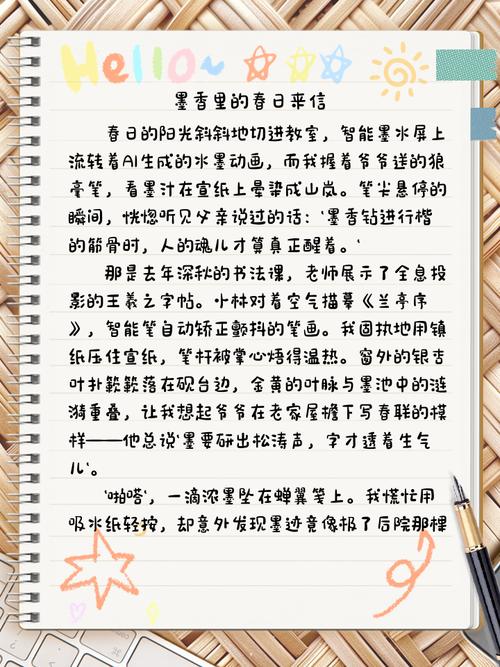 Hello~
墨香里的春日来信
春日的阳光斜斜地切进教室，智能墨水屏上
流转着AI生成的水墨动画，而我握着爷爷送的狼
毫笔，看墨汁在宣纸上晕染成山岚。笔尖悬停的
瞬间，恍惚听见父亲说过的话：‘墨香钻进行楷
的筋骨时，人的魂儿才算真正醒着。‘
那是去年深秋的书法课，老师展示了全息投
影的王羲之字帖。小林对着空气描摹《兰亭序
》，智能笔自动矫正颤抖的笔画。我固执地用镇
纸压住宣纸，笔杆被掌心焐得温热。窗外的银杏
叶扑簌簌落在砚台边，金黄的叶脉与墨池中的涟
漪重叠，让我想起爷爷在老家屋檐下写春联的模
样——他总说‘墨要研出松涛声，字才透着生气
儿‘。
‘啪嗒‘，一滴浓墨坠在蝉翼笺上。我慌忙用
吸水纸轻按，却意外发现墨迹竟像极了后院那棵